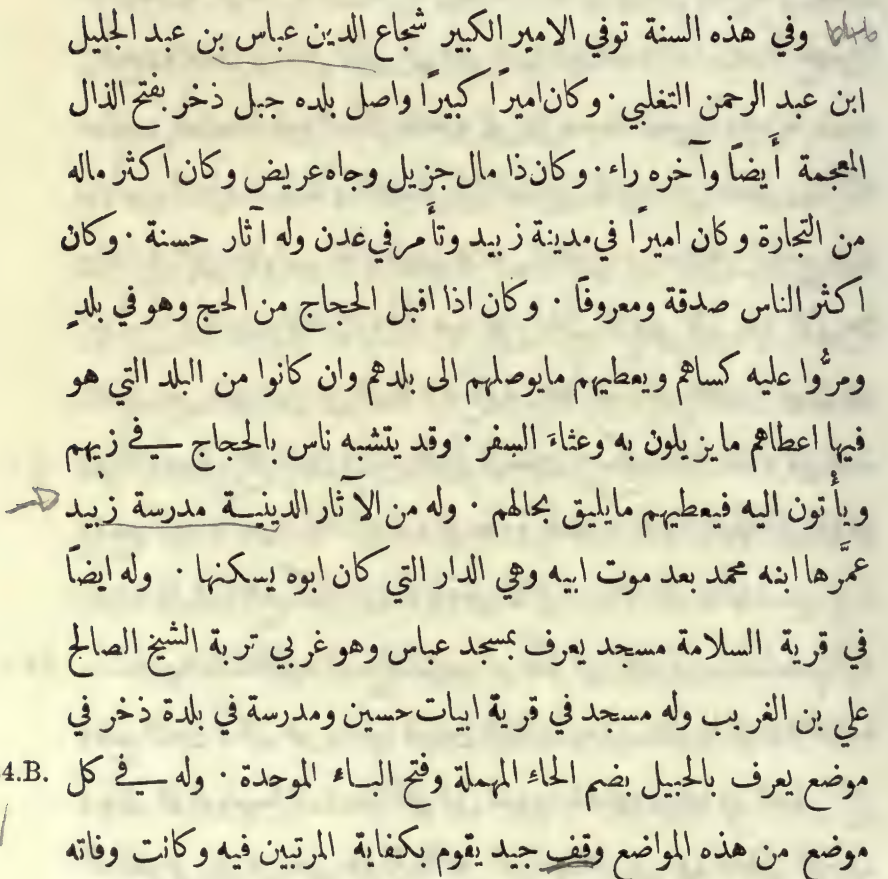 وفي هذه السنة توفي الامير الكبير شجاع الدين عباس بن عبد الجليل
ابن عبد الرحمن التغلبي · وكان اميرًا كبيرًا واصل بلده جبل ذخر بفتح الذال
المعجمة أيضاً وآخره راء · وكان ذا مال جزيل وجاه عريض وكان اكثر ماله
من التجارة وكان اميرًا في مدينة زبيد وتأمر في عدن وله آثار حسنة · وكان
اكثر الناس صدقة ومعروفاً · وكان اذا اقبل الحجاج من الحج وهو في بلدٍ
ومرُّوا عليه كساهم ويعطيهم مايوصلهم الى بلدهم وان كانوا من البلد التي هو
فيها اعطاهم مايزيلون به وعثاءَ السفر · وقد يتشبه ناس بالحجاج في زيهم
ويأْتون اليه فيعطيهم مايليق بحالهم · وله من الآثار الدينية مدرسة زبيد
عمَّرها ابنه محمد بعد موت ابيه وهي الدار التي كان ابوه يسكنها · وله ايضاً
في قرية السلامة مسجد يعرف بمسجد عباس وهو غربي تربة الشيخ الصالح
علي بن الغريب وله مسجد في قرية ابيات حسين ومدرسة في بلدة ذخر في
موضع يعرف بالحبيل بضم الحاء المهملة وفتح الباء الموحدة · وله في كل 4.B.
موضع من هذه المواضع وقف جيد يقوم بكفاية المرتبين فيه وكانت وفاته